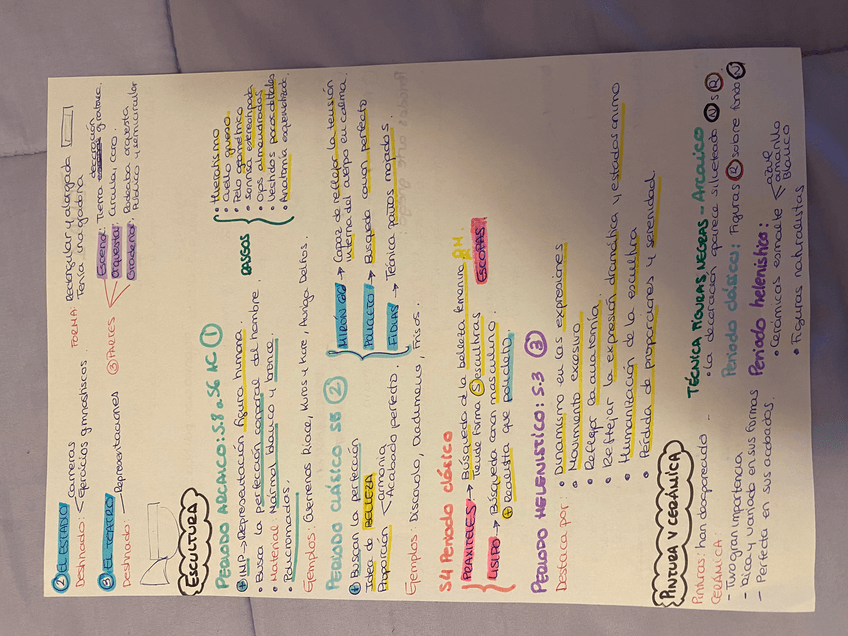 ② EL ESTADIO
Destinado: < Carreras
Ejercicios gimnásticos
FORMA: Rectangular y alargada
Tenía una gradería
③ EL TEATRO
Destinado: — Representaciones
③ PARTES
Escena: Tierra decoración gratuita.
Orquesta: Circular, coro.
Graderia: Rodeaba orquesta
Público y semicircular
ESCULTURA
PERIODO ARCAICO: S.8 a S6 AC ①
⊕ INP → Representación figura humana.
• Busca la perfección corporal del hombre.
• Material: Marmol blanco y bronce.
• Policromadas.
Ejemplos: Guerreros Riace, Kuros y Kore, Auriga Delfos.
RASGOS
• Hieratismo
• Cuello grueso.
• Pelo geométrico
• Sonrisa estereotipada
• Ojos almendrados
• Vestidos paños dobles
• Anatomía esquematizada.
PERIODO CLÁSICO S5 ②
⊕ Buscan la perfección
Idea de BELLEZA
Proporción < armonía
Acabado perfecto.
MIRÓN → Capaz de reflejar la tensión
interna del cuerpo en calma.
POLICLETO → Búsqueda canon perfecto
FIDIAS → Técnica paños mojados.
Ejemplos: Discóbolo, Diadumeno, Frisos.
S4 Periodo clásico
PRAXITELES → Búsqueda de la belleza femenina
Tiende forma S esculturas
LISIPO → Búsqueda canon masculino
⊕ Realista que policleto
ESCOPAS
PERIODO HELENÍSTICO: S.3 ③
Destaca por:
• Dinamismo en las expresiones
• Movimiento excesivo
• Reflejar la anatomía.
• Reflejar la expresión dramática y estados ánimo
• Humanización de la escultura
• Pérdida de proporciones y serenidad.
PINTURA Y CERÁMICA
Pinturas: han desaparecido –
CERÁMICA:
– Tuvo gran importancia
– Rica y variada en sus formas
– Perfecta en sus acabados.
TÉCNICA FIGURAS NEGRAS – ARCAICO
• La decoración aparece silueteada Ⓝ S Ⓡ
Periodo clásico: Figuras Ⓡ sobre fondo Ⓝ
Periodo helenístico:
• Cerámicas esmalte < azul
amarillo
Blanco
• Figuras naturalistas